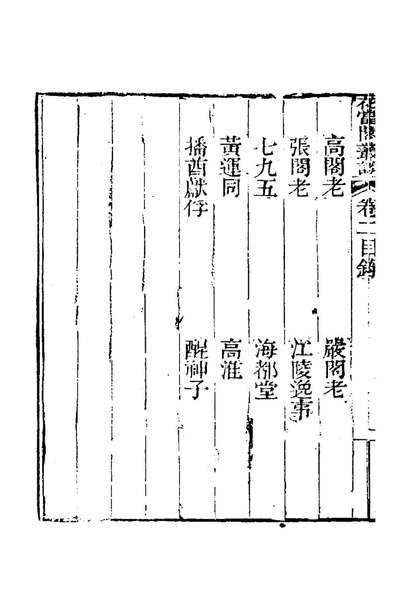 花當閣叢談 卷二目錄
高閣老 嚴閣老
張閣老 江陵逸事
七九五 海都堂
黃運同 高淮
播酋獻俘 醒神子